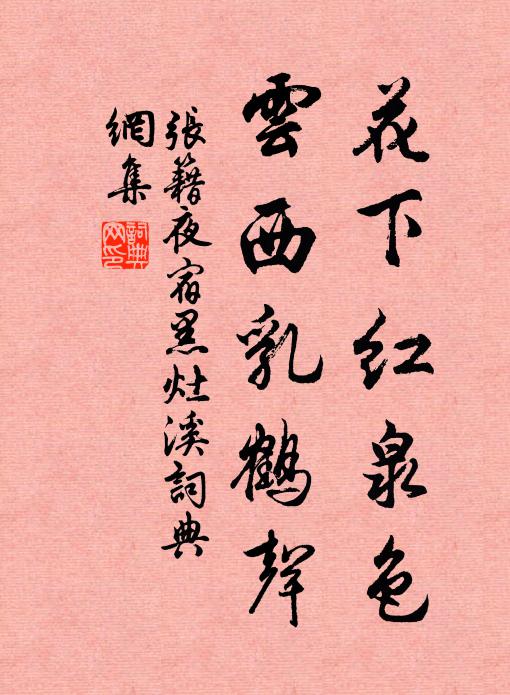 花下红泉色
雲西乳鶴聲
張籍夜宿黑灶溪詞典
網集
詞典
网印